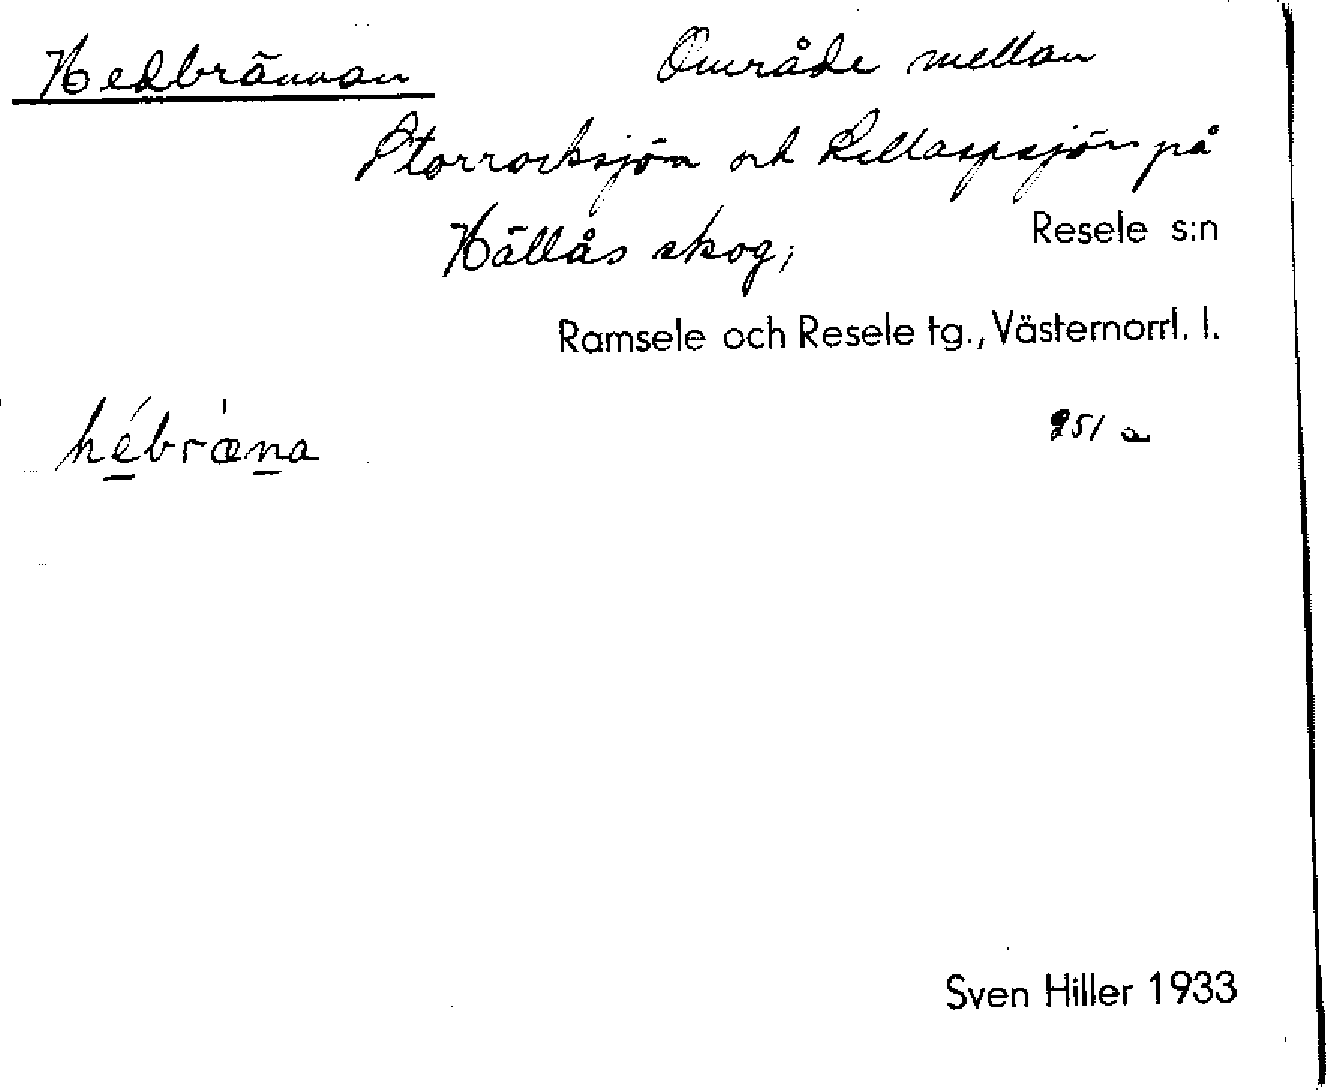 Hedbrännan Område mellan
Storrocksjön och Lillaspsjön på
Hällås skog; Resele s:n
Ramsele och Resele tg., Västernorrl. l.
hébræ̀na 251 a
Sven Hiller 1933